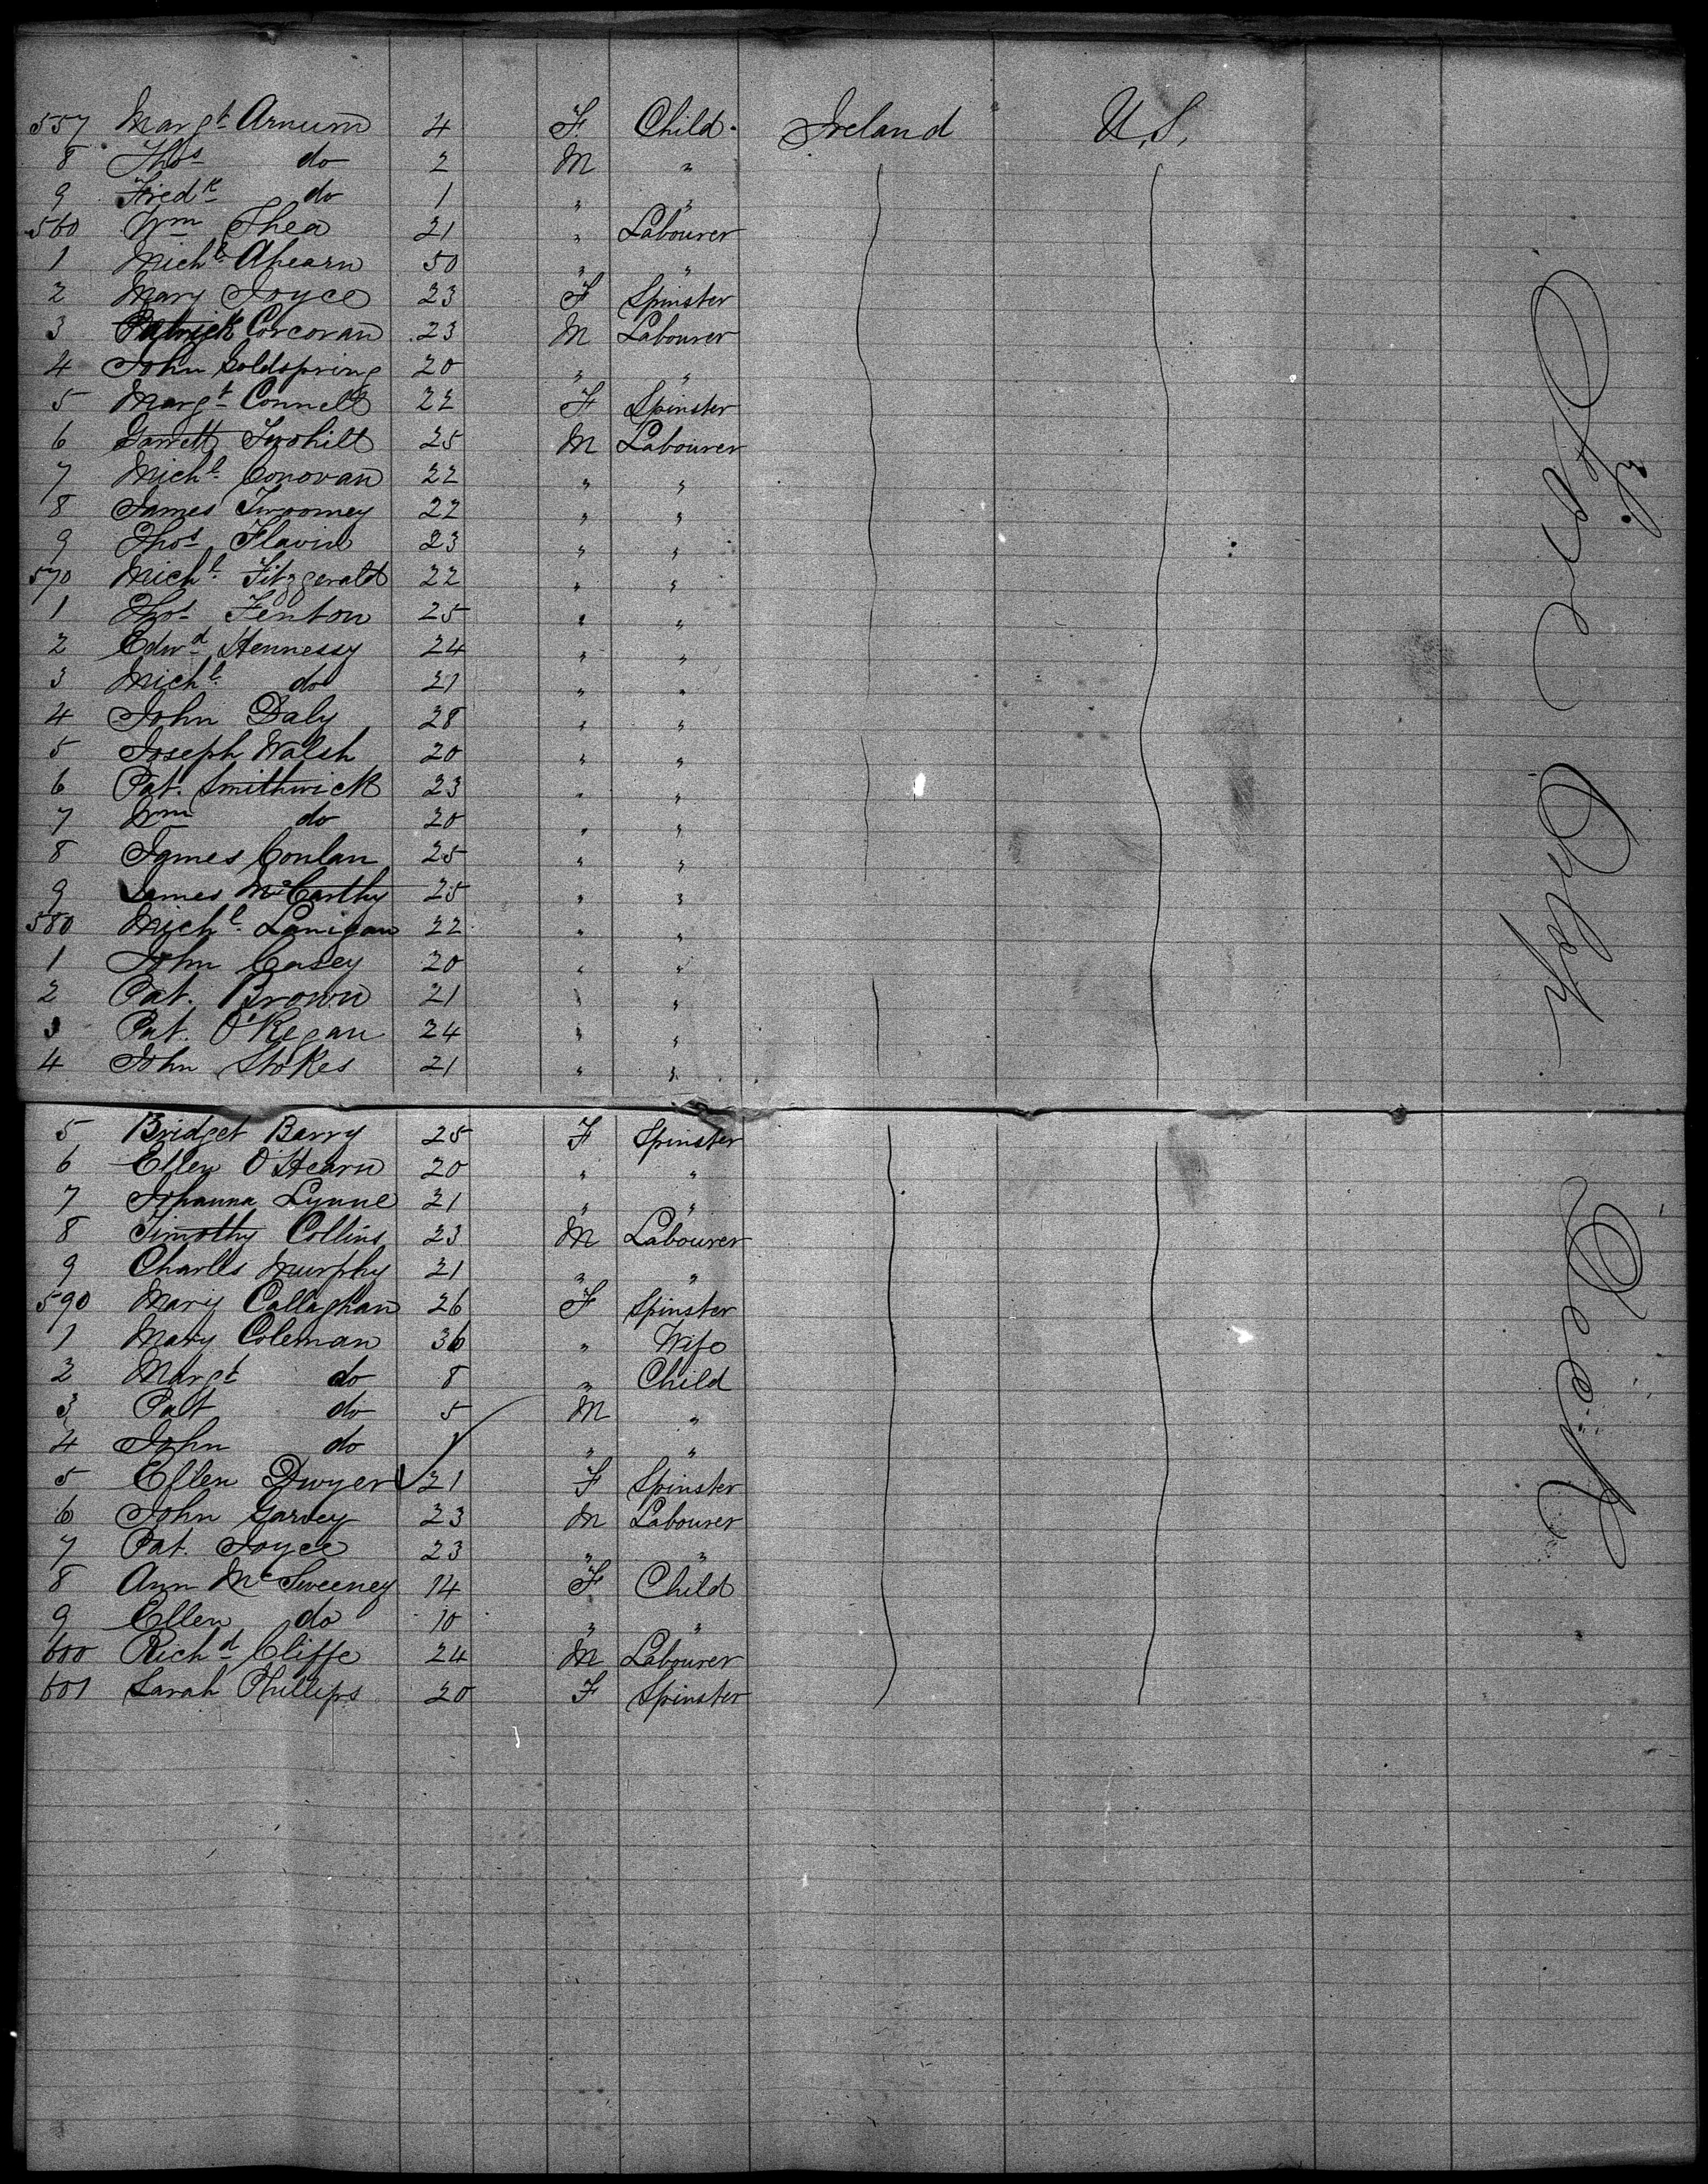 557 Margt Arnum 4 F. Child. Ireland U.S.
8 Thos do 2 M "
9 Fredk do 1 " "
560 Wm Shea 21 " Labourer
1 Michl Ahearn 50 " "
2 Mary Joyce 23 F Spinster
3 Patrick Corcoran 23 M Labourer
4 John Goldspring 20 " "
5 Margt Connell 22 F Spinster
6 Garrett Twohill 25 M Labourer
7 Michl Conovan 22 " "
8 James Twoomey 22 " "
9 Thos Flavin 23 " "
570 Michl Fitzgerald 22 " "
1 Thos Fenton 25 " "
2 Edwd Hennessy 24 " "
3 Michl do 21 " "
4 John Daly 28 " "
5 Joseph Walsh 20 " "
6 Pat. Smithwick 23 " "
7 Wm do 20 " "
8 James Conlan 25 " "
9 James McCarthy 25 " "
580 Michl Lanigan 22 " "
1 John Casey 20 " "
2 Pat. Brown 21 " "
3 Pat. O'Regan 24 " "
4 John Stokes 21 " "
5 Bridget Barry 25 F Spinster
6 Ellen O'Hearn 20 " "
7 Johanna Lynne 21 " "
8 Timothy Collins 23 M Labourer
9 Charles Murphy 21 " "
590 Mary Callaghan 26 F Spinster
1 Mary Coleman 36 " Wife
2 Margt do 8 " Child
3 Patt do 5 M "
4 John do 1 " "
5 Ellen Dwyer 21 F Spinster
6 John Garvey 23 M Labourer
7 Pat. Joyce 23 " "
8 Ann McSweeney 14 F Child
9 Ellen do 10 " "
600 Richd Cliffe 24 M Labourer
601 Sarah Phillips 20 F Spinster
Deck